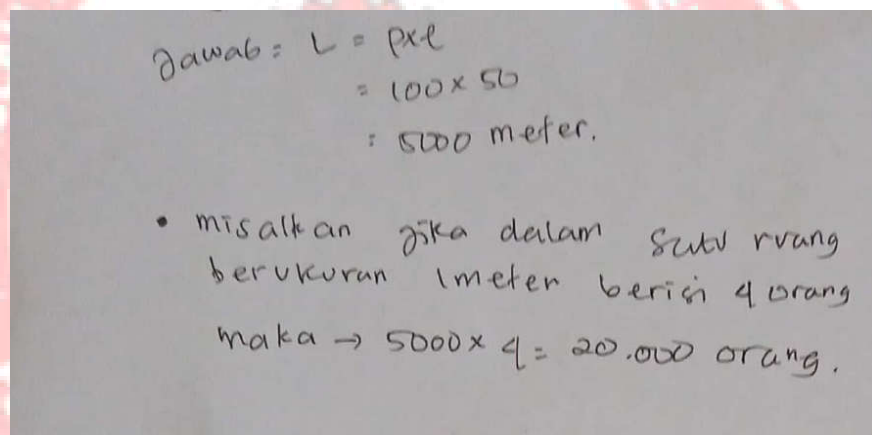 Jawab = L = pxl
= 100 x 50
= 5000 meter.
• misalkan jika dalam satu ruang
berukuran 1meter berisi 4 orang
maka → 5000 x 4 = 20.000 orang.